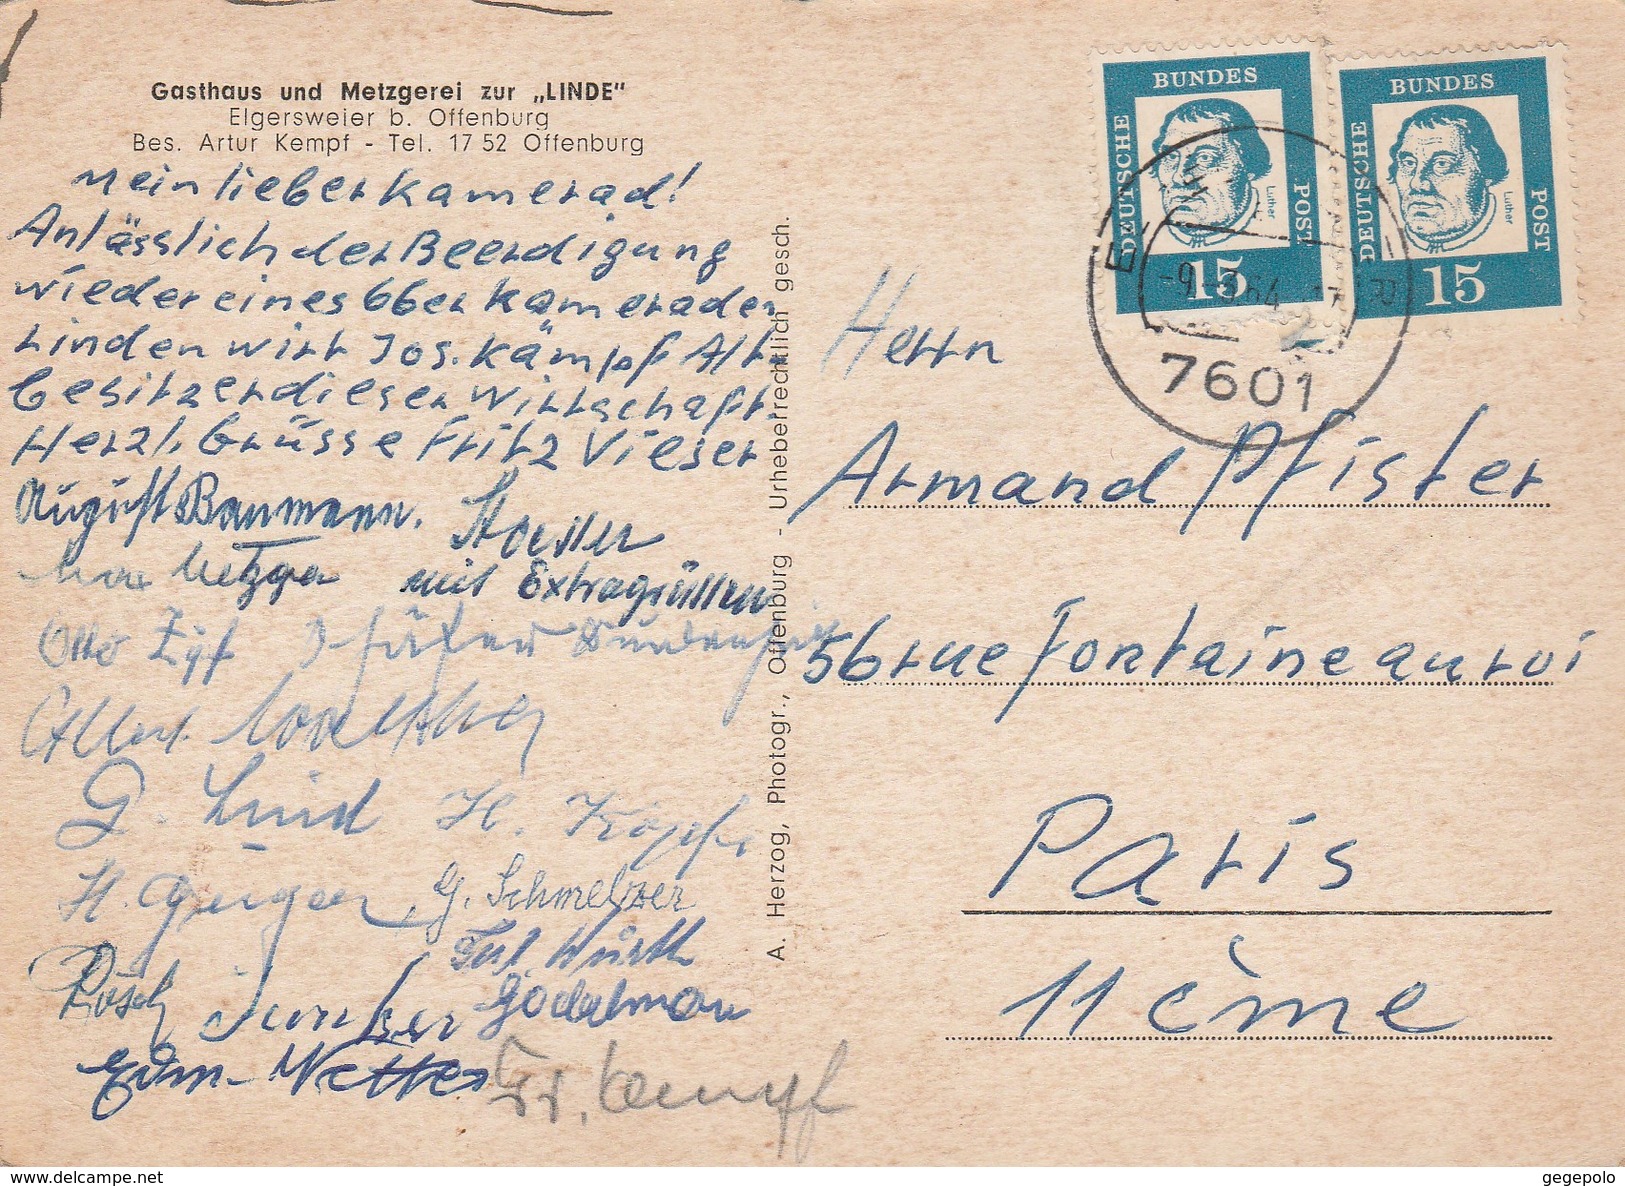 Gasthaus und Metzgerei zur „LINDE"
Elgersweier b. Offenburg
Bes. Artur Kempf - Tel. 17 52 Offenburg
Mein lieber Kamerad!
Anlässlich der Beerdigung
wieder eines 66er Kameraden
Lindenwirt Jos. Kämpf Alt-
besitzer dieser Wirtschaft.
Herzl. Grüsse Fritz Vieser
August Baumann.
Metzger mit Extragrüssen
Otto Schäfer
Albert
G. Lind H.
H. Geiger, G. Schmelzer
Würth
Rösch Junker
Vetter
Kempf
A. Herzog, Photogr., Offenburg - Urheberrechtlich gesch.
DEUTSCHE BUNDES POST
Luther
15
DEUTSCHE BUNDES POST
Luther
15
7601
Herrn
Armand Pfister
56 rue Fontaine au roi
Paris
11ème
delcampe.net
gegepolo